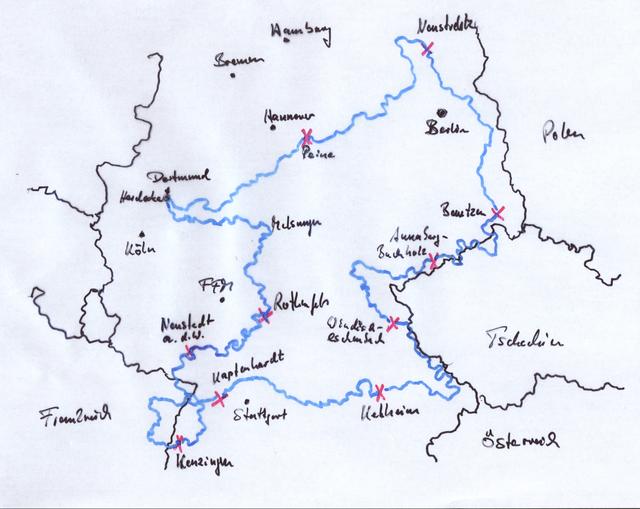 Neustrelitz
Hamburg
Bremen
Hannover
Berlin
Polen
Peine
Dortmund
Herdecke
Bautzen
Melsungen
Annaberg-
Buchholz
Köln
Ffm
Rothenfels
Windisch-
eschenbach
Neustadt
a.d.W.
Tschechien
Kapfenhardt
Frankreich
Stuttgart
Kelheim
Österreich
Kenzingen